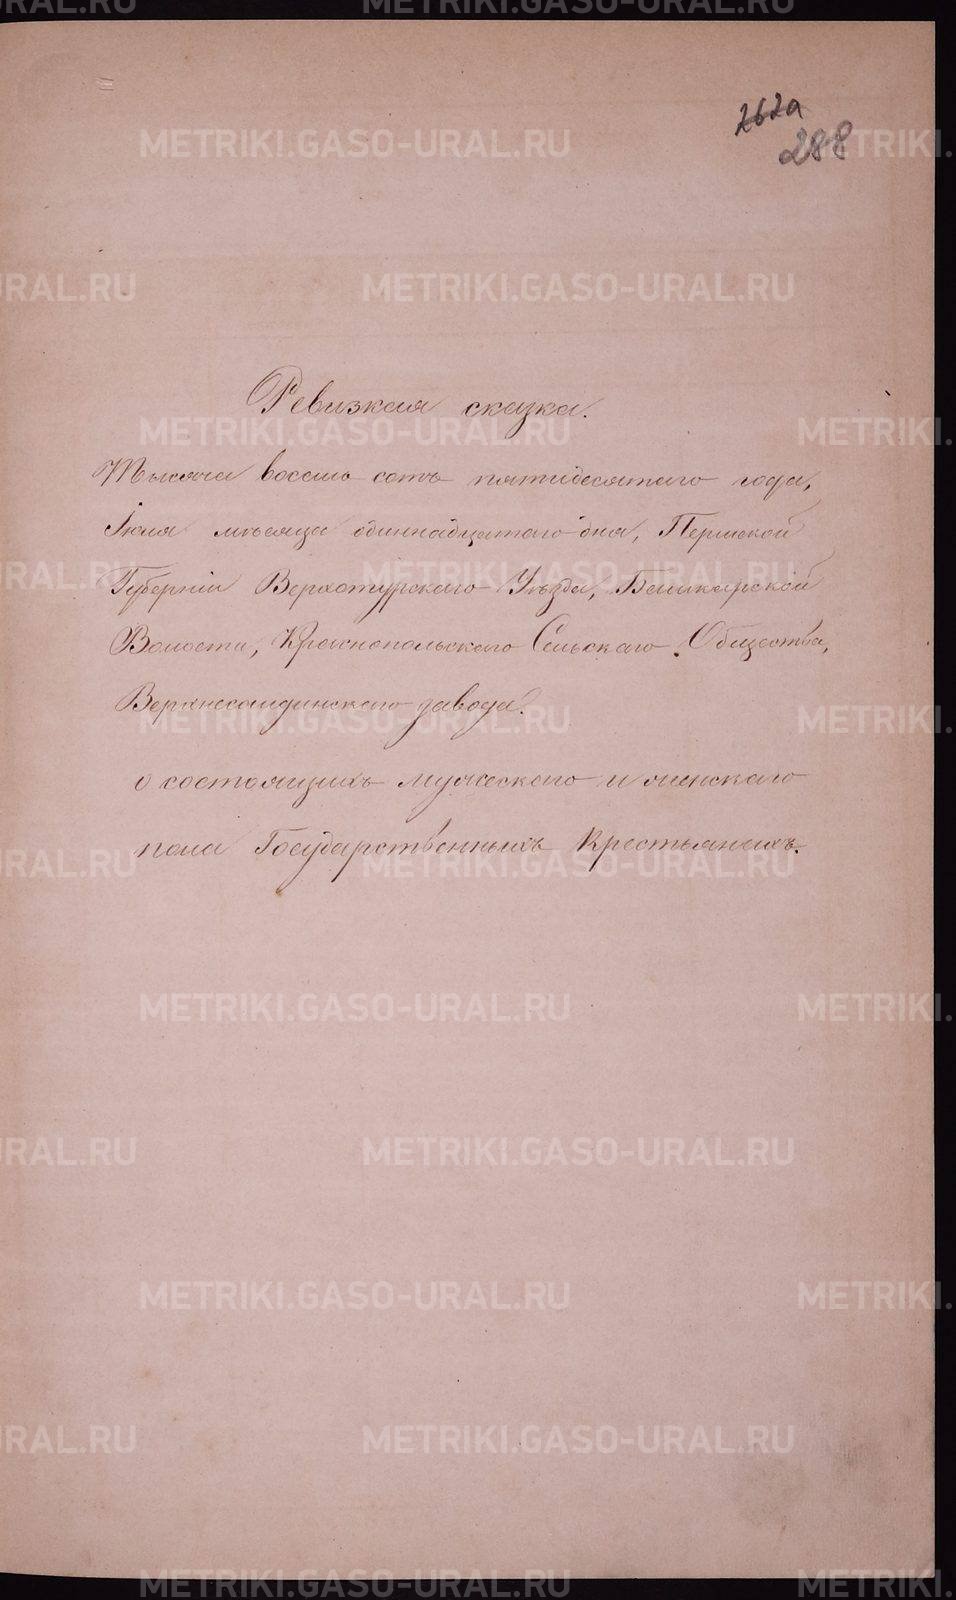 262а
288
Ревизкая сказка.
Тысяча восемь сотъ пятидесятаго года,
Іюля мѣсяца одиннадцатаго дня, Пермской
Губерніи Верхотурскаго Уѣзда, Башкарской
Волости, Краснопольскаго Сельскаго Общества,
Верхнесалдинскаго завода.
о состоящихъ мужескаго и женскаго
пола Государственныхъ Крестьянахъ.
METRIKI.GASO-URAL.RU